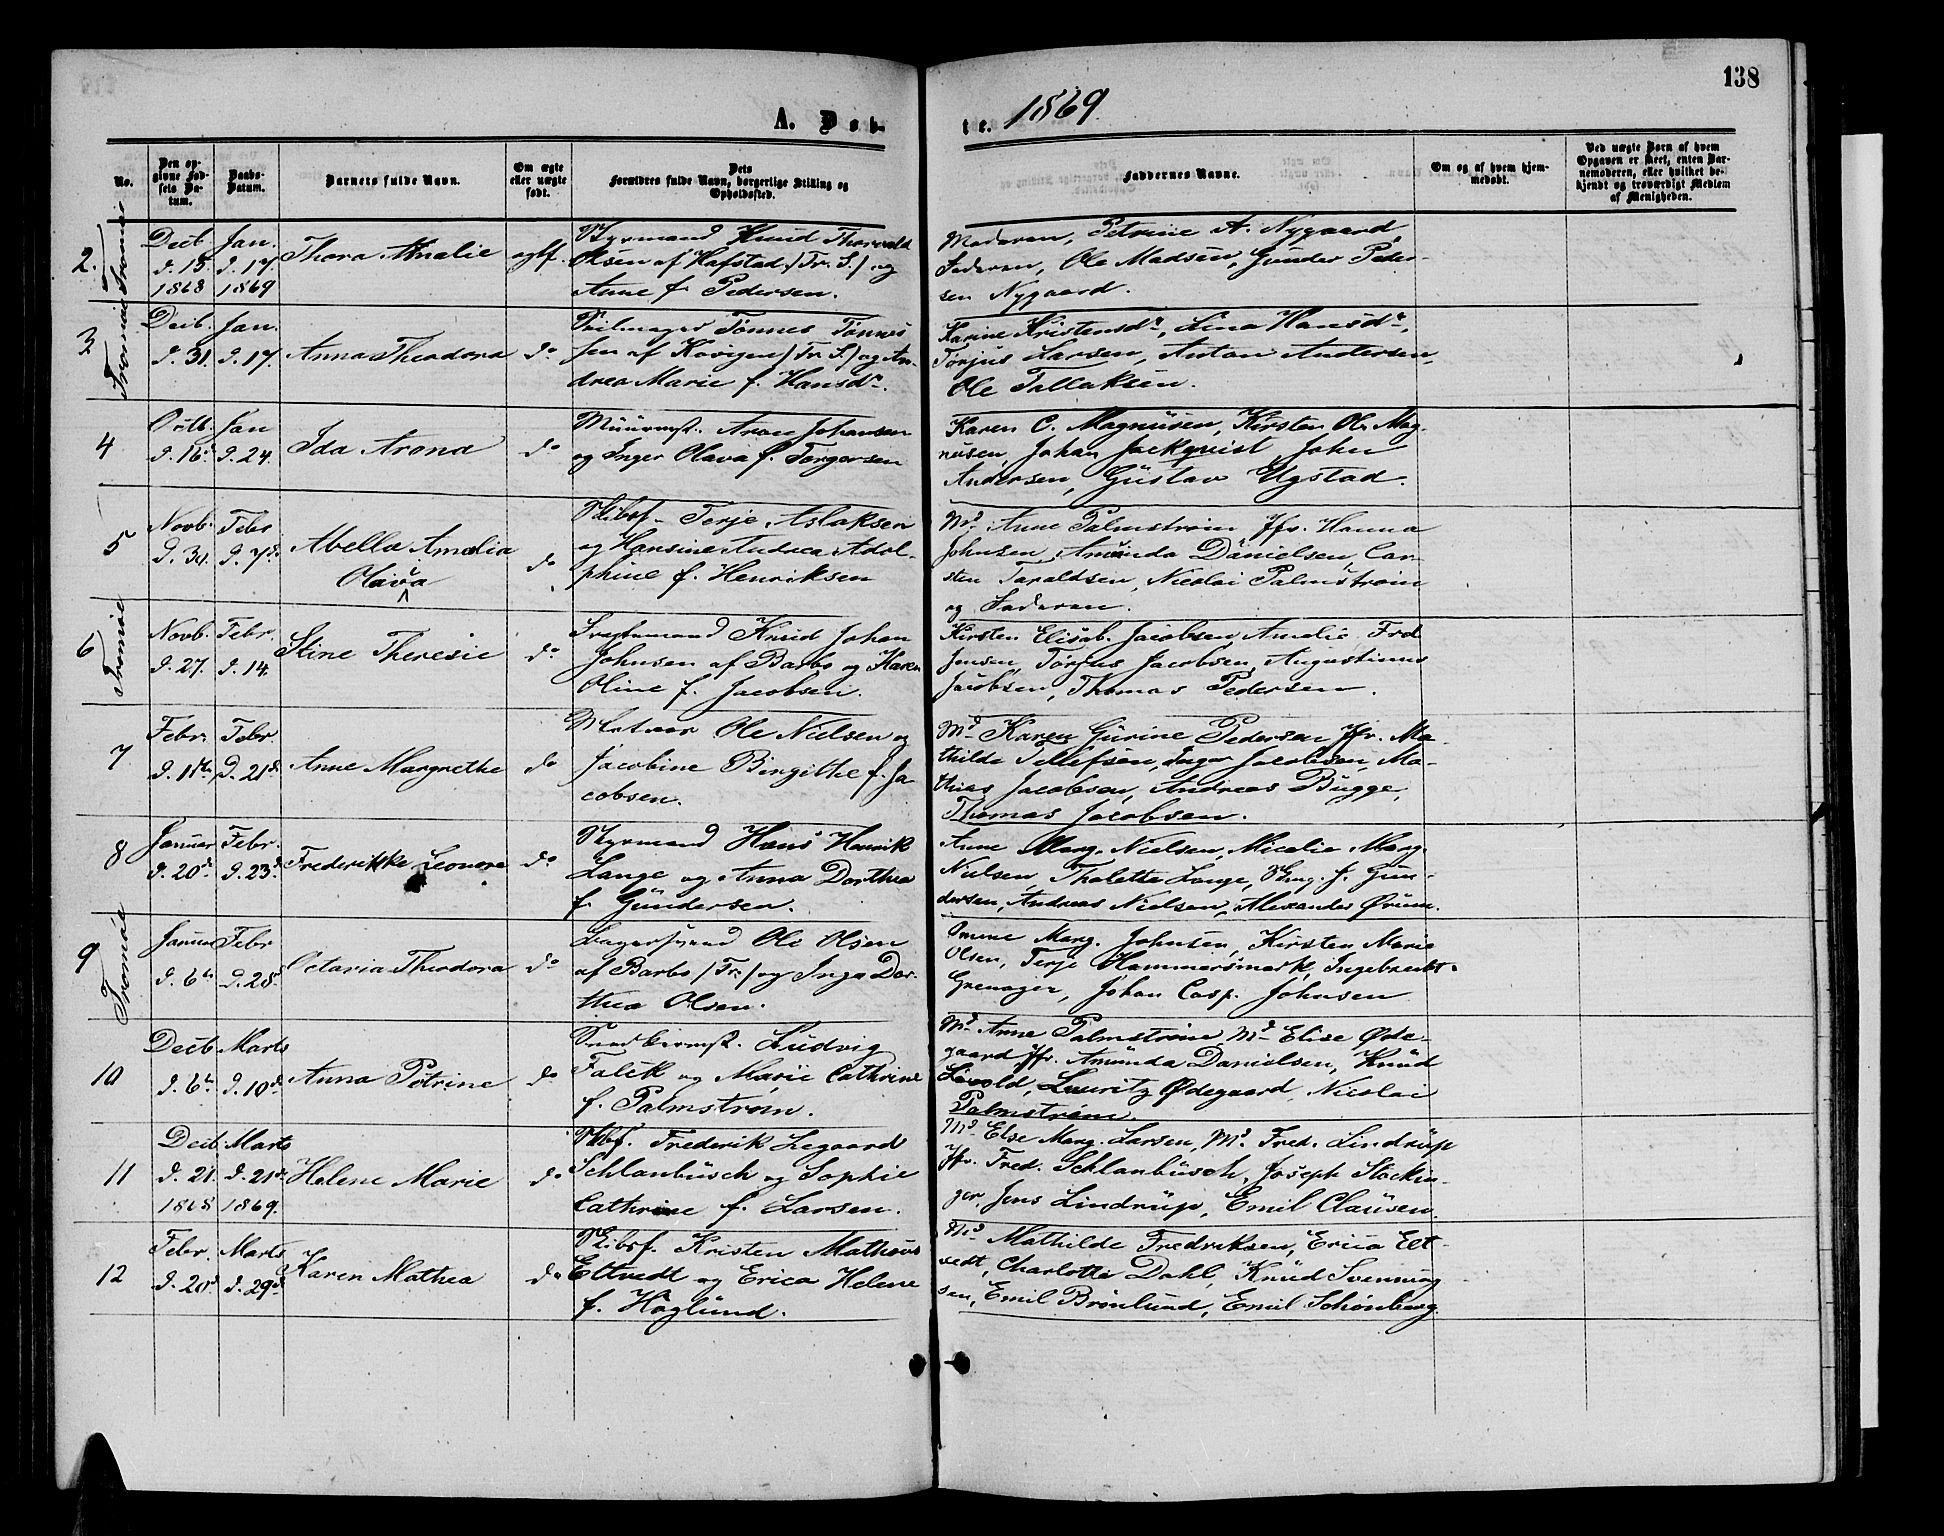 138
A. Døb-
te. 1869.
No.
Den opgivne Fødsels Datum.
Daabs-Datum.
Barnets fulde Navn.
Om ægte eller uægte født.
Dets Forældres fulde Navn, borgerlige Stilling og Opholdssted.
Faddernes Navne.
Om og af hvem hjemmedøbt.
Ved uægte Børn af hvem Opgaven er skeet, enten Barnemoderen, eller hvilket bekjendt og troværdigt Medlem af Menigheden.
2. Tromøe
Decb. Jan.
d. 15. d. 17.
1868 1869
Thora Amalie
Styrmand Knud Thorvald
Olsen af Hafstad (Tr. S.) og
Anne f. Pedersen.
Moderen, Petrine A. Nygaard
Faderen, Ole Madsen, Gunder Peder-
sen Nygaard.
3 Tromøe
Decb. Jan.
d. 31. d. 17.
Anna Theodora
do
Seilmager Tønnes Tønnes
sen af Kovigen (Tr. S.) og An-
drea Marie f. Hansdr.
Karine Kristensdr, Lina Hansdr,
Tørjus Larsen, Anton Andersen,
Ole Tallaksen.
4
Octb. Jan
d. 16 d. 24.
Ida Arona
do
Muurmst. Aron Johansen
og Inger Olava f. Torgersen
Karen C. Magnusen, Kirsten Ol. Mag-
nusen, Johan Jackqvist, John
Andersen, Gustav Ugstad.
5
Novb. Febr
d. 30. d. 7de
Abella Amalia
Olava
do
Skibsf. Terje Aslaksen
og Hansine Andrea Adol-
phine f. Henriksen
Md. Anne Palmstrøm Jfr. Hanna
Johnsen, Amunda Danielsen, Car-
sten Taraldsen, Nicolai Palmstrøm
og Faderen.
6 Tromøe
Novb. Febr.
d. 27. d. 14.
Stine Theresie
do
Fragtemand Knud Johan
Johnsen af Barbo og Karen
Oline f. Jacobsen.
Kirsten Elisab. Jacobsen, Amalie Frd.
Jensen, Tørjus Jacobsen, Augustinus
Jacobsen, Thomas Pedersen.
7
Febr. Febr.
d. 1ste d. 21de
Anne Margrethe
do
Matros Ole Nielsen og
Jacobine Birgithe f. Ja
cobsen.
Md. Karen Gurine Pedersen Jfr. Ma-
thilde Tellefsen, Inger Jacobsen, Ma-
thias Jacobsen, Andreas Bugge,
Thomas Jacobsen.
8
Januar Febr.
d. 20de d. 23de
Frederikke Leonore
do
Styrmand Hans Henrik
Lange og Anna Dorthea
f. Gundersen.
Anne Marg. Nielsen, Micalie Marg.
Nielsen, Thalette Lange, f. Gun-
dersen, Andreas Nielsen, Alexander Ørum.
9 Tromøe
Januar Febr
d. 6te d. 28.
Octaria Theodora
do
Ole Olsen
af Barbo (Tr.) og Inga Dor-
thea Olsen.
Marg. Johnsen, Kirsten Marie
Olsen, Terje Hammersmark, Ingebreckt
Grenager, Johan Casp. Johnsen
10
Decb. Marts
d. 6te d. 10de
Anna Petrine
do
Snedkermst. Ludvig
Falck og Marie Cathrine
f. Palmstrøm.
Md. Anne Palmstrøm, Md. Elise Øde-
gaard Jfr. Amunda Danielsen, Knud
Lauritz Ødegaard, Nicolai
Palmstrøm.
11
Decb. Marts
d. 21. d. 21de
1868 1869.
Helene Marie
do
Skbf. Frederik Legaard
Schlanbusch og Sophie
Cathrine f. Larsen.
Md. Else Marg. Larsen, Md. Fred. Lindrup
Jfr. Fred. Schlanbusch, Joseph Stockin-
ger, Jens Lindrup, Emil Clausen.
12
Febr. Marts
d. 20de d. 29de
Karen Mathea
do
Skibsf. Kristen Matheus
Eltvedt og Erica Helene
f. Høglund.
Md. Mathilde Fredriksen, Erica Elt-
vedt, Charlotte Dahl, Knud Svenning
sen, Emil Brønlund, Emil Schønberg.